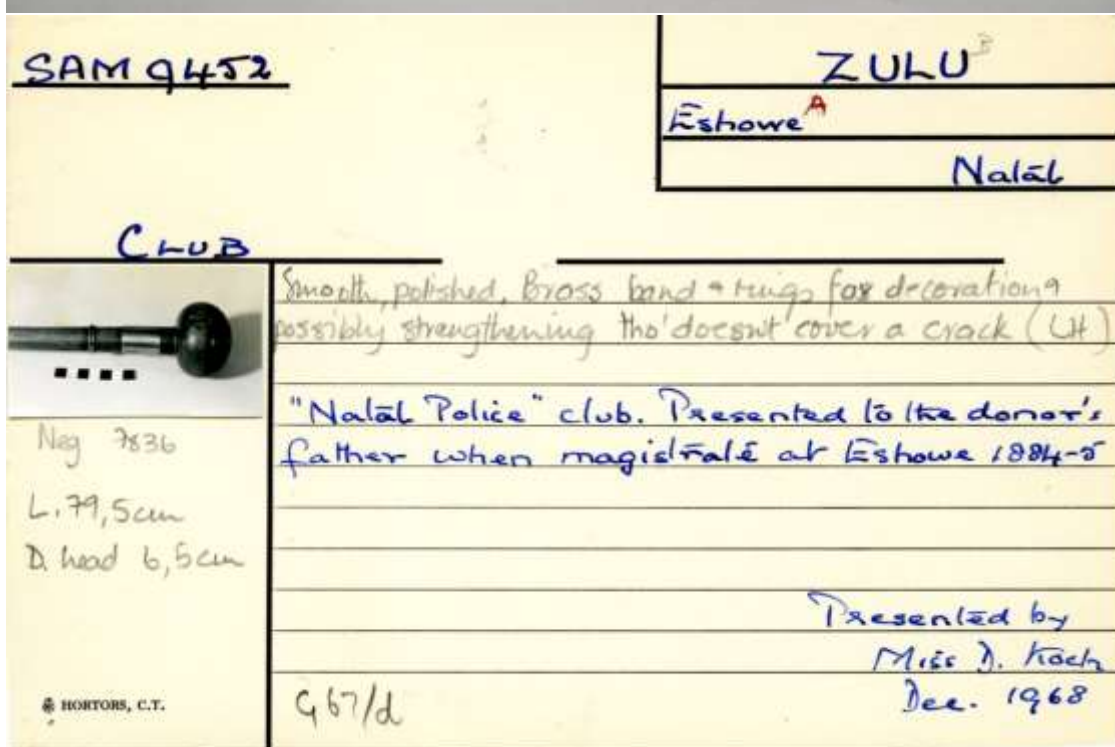 SAM 9452
ZULU B
Eshowe A
Natal
CLUB
Smooth, polished, Brass band & rings for decoration &
possibly strengthening tho' doesn't cover a crack (LH)
"Natal Police" club. Presented to the donor's
father when magistrate at Eshowe 1884-5
Neg 7836
L. 79,5cm
D. head 6,5cm
Presented by
Miss D. Koch
Dec. 1968
G67/d
HORTORS, C.T.